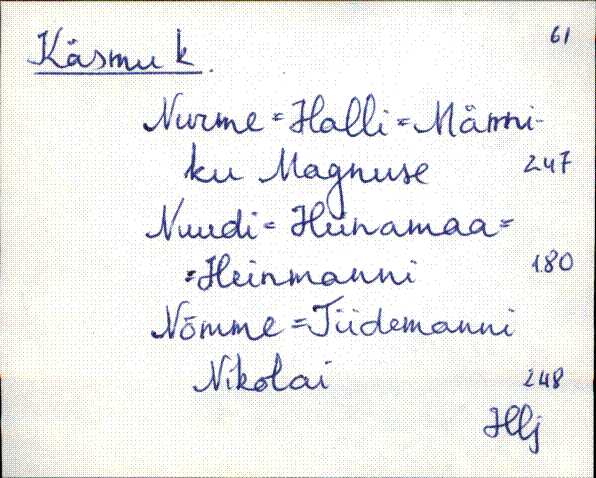 61
Käsmu k.
Nurme = Halli = Männi-
ku Magnuse 247
Nuudi = Heinamaa =
= Heinmanni 180
Nõmme = Tiidemanni
Nikolai 248